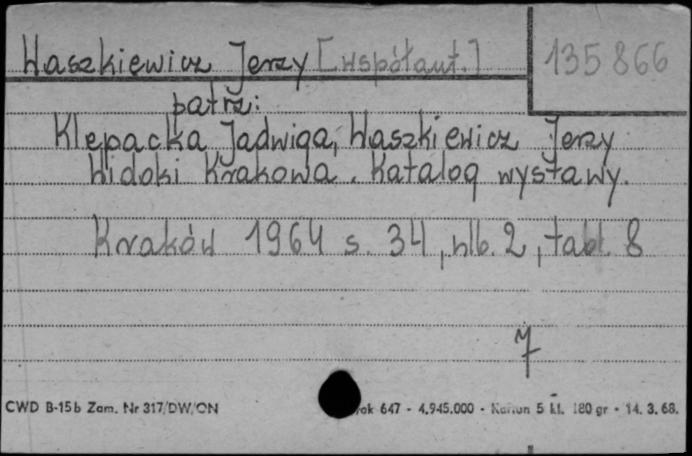 Waszkiewicz Jerzy [współaut.] 135 866
patrz:
Klępacka Jadwiga, Waszkiewicz Jerzy
Widoki Krakowa. Katalog wystawy.
Kraków 1964 s. 34, nlb. 2, tabl. 8
7
CWD B-15b Zam. Nr 317/DW/ON 647 - 4.945.000 - Karton 5 kl. 180 gr - 14. 3. 68.